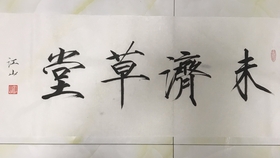 未濟草堂
江山